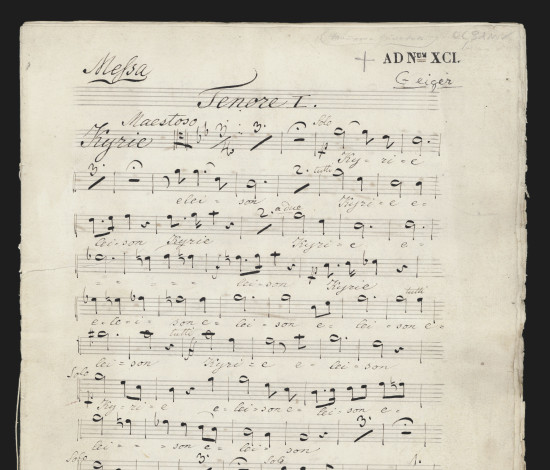 AD Nᵘᵐ XCI.
Messa
Geiger
Tenore I.
Maestoso
Solo
Kyrie
3.
Ky - ri - e
3. 2. tutti
elei - son Kyri - e e -
2. a due
lei - son Kyrie Kyri - e e -
lei - son Kyrie
tutti
e - lei - son e - lei - son e - lei - son e -
tutti
lei - son Kyri - e e - lei - son
Solo
Ky - ri - e e - lei - son e -
3.
lei - son e - lei - son
Solo 3. Solo 1.